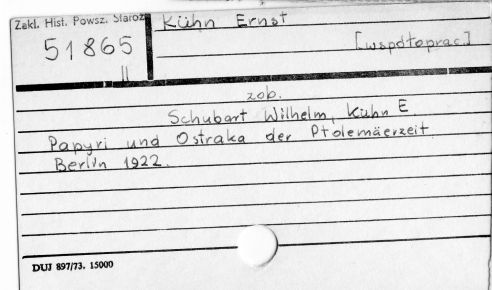 Zakl. Hist. Powsz. Staroż
Kühn Ernst
51865
II
[współoprac.]
zob.
Schubart Wilhelm, Kühn E
Papyri und Ostraka der Ptolemäerzeit.
Berlin 1922.
DUJ 897/73. 15000